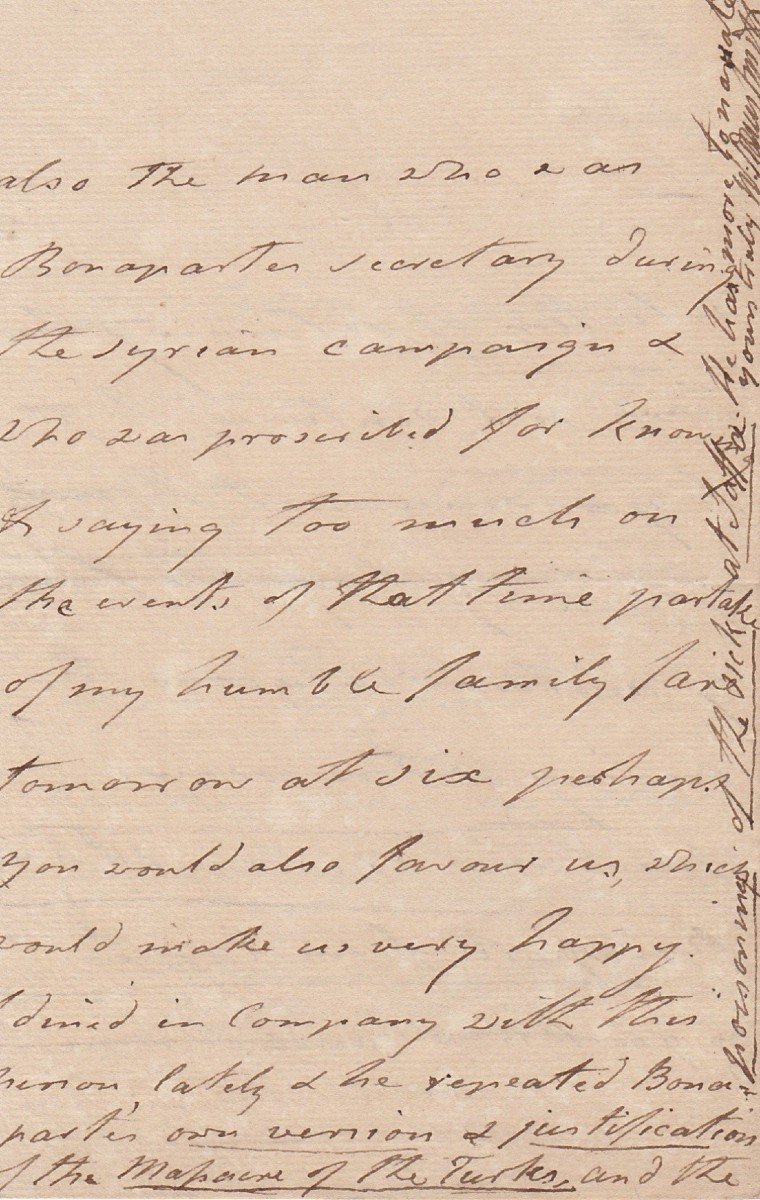 also the man who was
Bonapartes secretary during
the syrian campaign &
who was proscribed for knowing
& saying too much on
the events of that time partake
of my humble family fare
tomorrow at six perhaps
you would also favour us, which
would make us very happy.
I dined in Company with this
person lately & he repeated Bona-
parte's own version & justification
of the Massacre of the Turks, and the
poisoning of the sick at Jaffa. He has more to narate
yours truly W. Sidney Smith